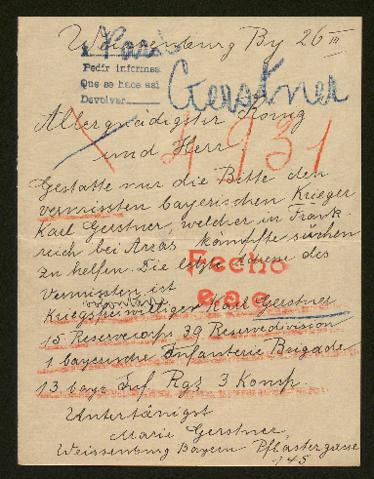 Weissenburg By 26 III
Pedir informes
Que se hace así
Devolver
Gerstner
Allergnädigster König
und Herr!
931
Gestatte mir die Bitte den
vermissten bayerischen Krieger
Karl Gerstner, welcher in Frank-
reich bei Arras kämpfte suchen
zu helfen. Die letzte Adresse des
Fecho
Vermissten ist
Kriegsfreiwilliger Karl Gerstner
15 Reservecorps 39 Reservedivision
1 bayerische Infanterie Brigade
13 bayr Inf. Rgt 3 Komp.
Untertänigst
Marie Gerstner,
Weissenburg Bayern Pflastergasse
145